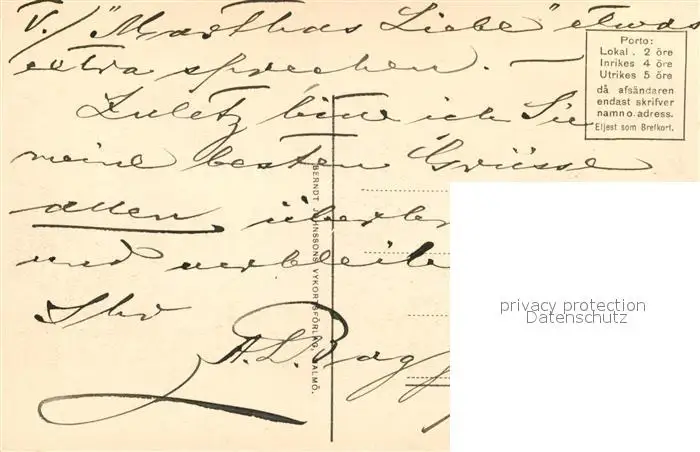 V./ "Marthas Liebe" etwas
extra sprechen. —
Zuletzt bitte ich Sie
meine besten Grüsse
allen
und verbleibe
Ihr
A. L.
Porto:
Lokal . 2 öre
Inrikes 4 öre
Utrikes 5 öre
då afsändaren
endast skrifver
namn o. adress.
Eljest som Brefkort.
BERNDT JOHNSSONS VYKORTSFÖRLAG, MALMÖ.
privacy protection
Datenschutz